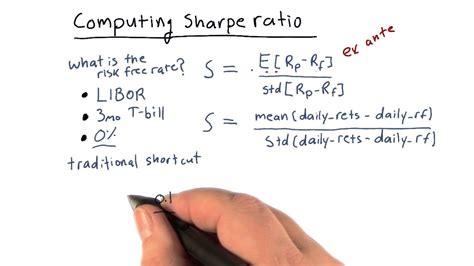 Computing Sharpe ratio
what is the
risk free rate?
• LIBOR
• 3mo T-bill
• 0%
traditional shortcut
S = E[Rp-Rf]
std[Rp-Rf]
ex ante
S = mean(daily_rets - daily_rf)
Std(daily-rets - daily_rf)
0.1